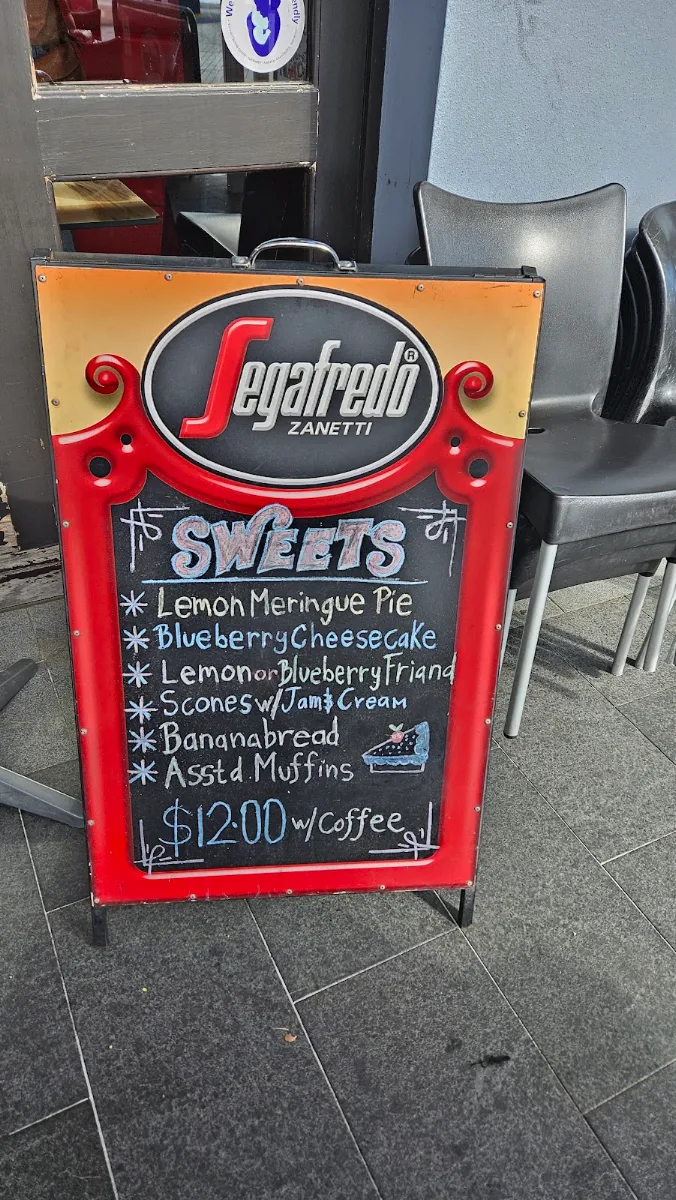 We
endly
Segafredo®
ZANETTI
SWEETS
* Lemon Meringue Pie
* Blueberry Cheesecake
* Lemon or Blueberry Friand
* Scones w/ Jam & Cream
* Bananabread
* Asst'd Muffins
$12.00 w/ Coffee